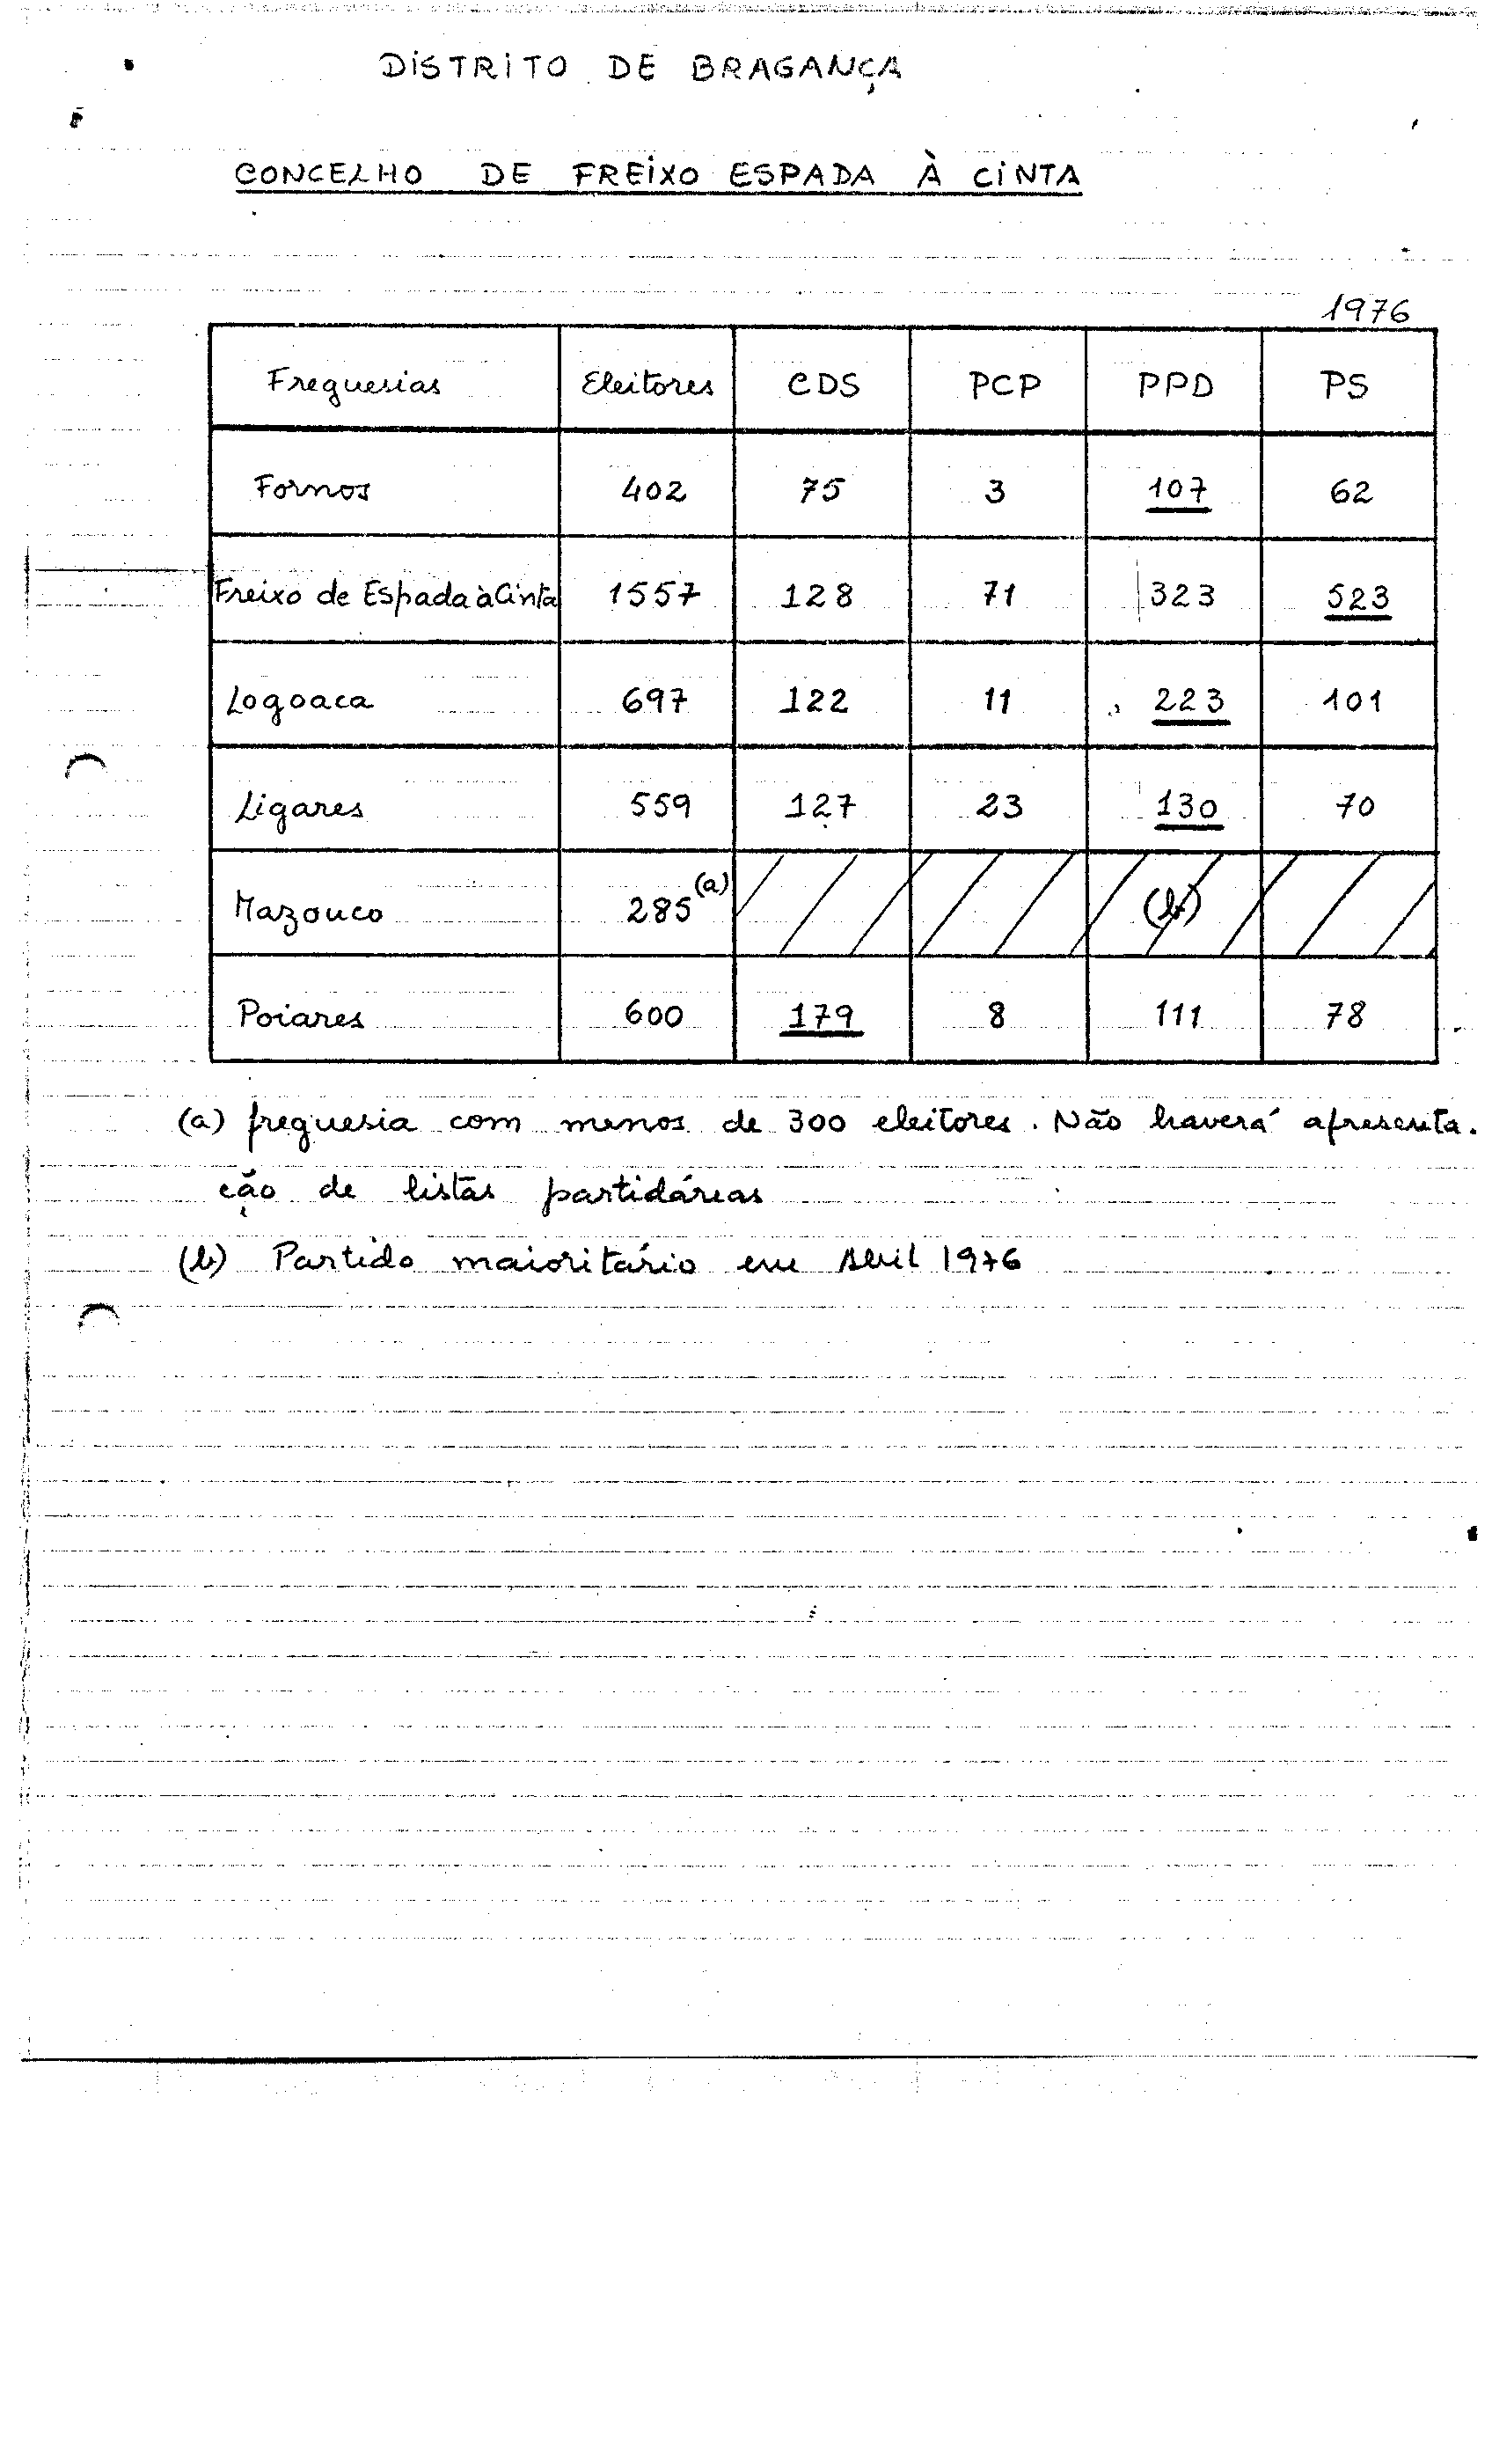 DISTRITO DE BRAGANÇA
CONCELHO DE FREIXO ESPADA À CINTA
1976
Freguesias Eleitores CDS PCP PPD PS
Fornos 402 75 3 107 62
Freixo de Espada à Cinta 1557 128 71 323 523
Logoaca 697 122 11 223 101
Ligares 559 127 23 130 70
Mazouco 285 (a) (b)
Poiares 600 179 8 111 78
(a) freguesia com menos de 300 eleitores. Não haverá apresenta-
ção de listas partidáreas
(b) Partido maioritário em Abril 1976